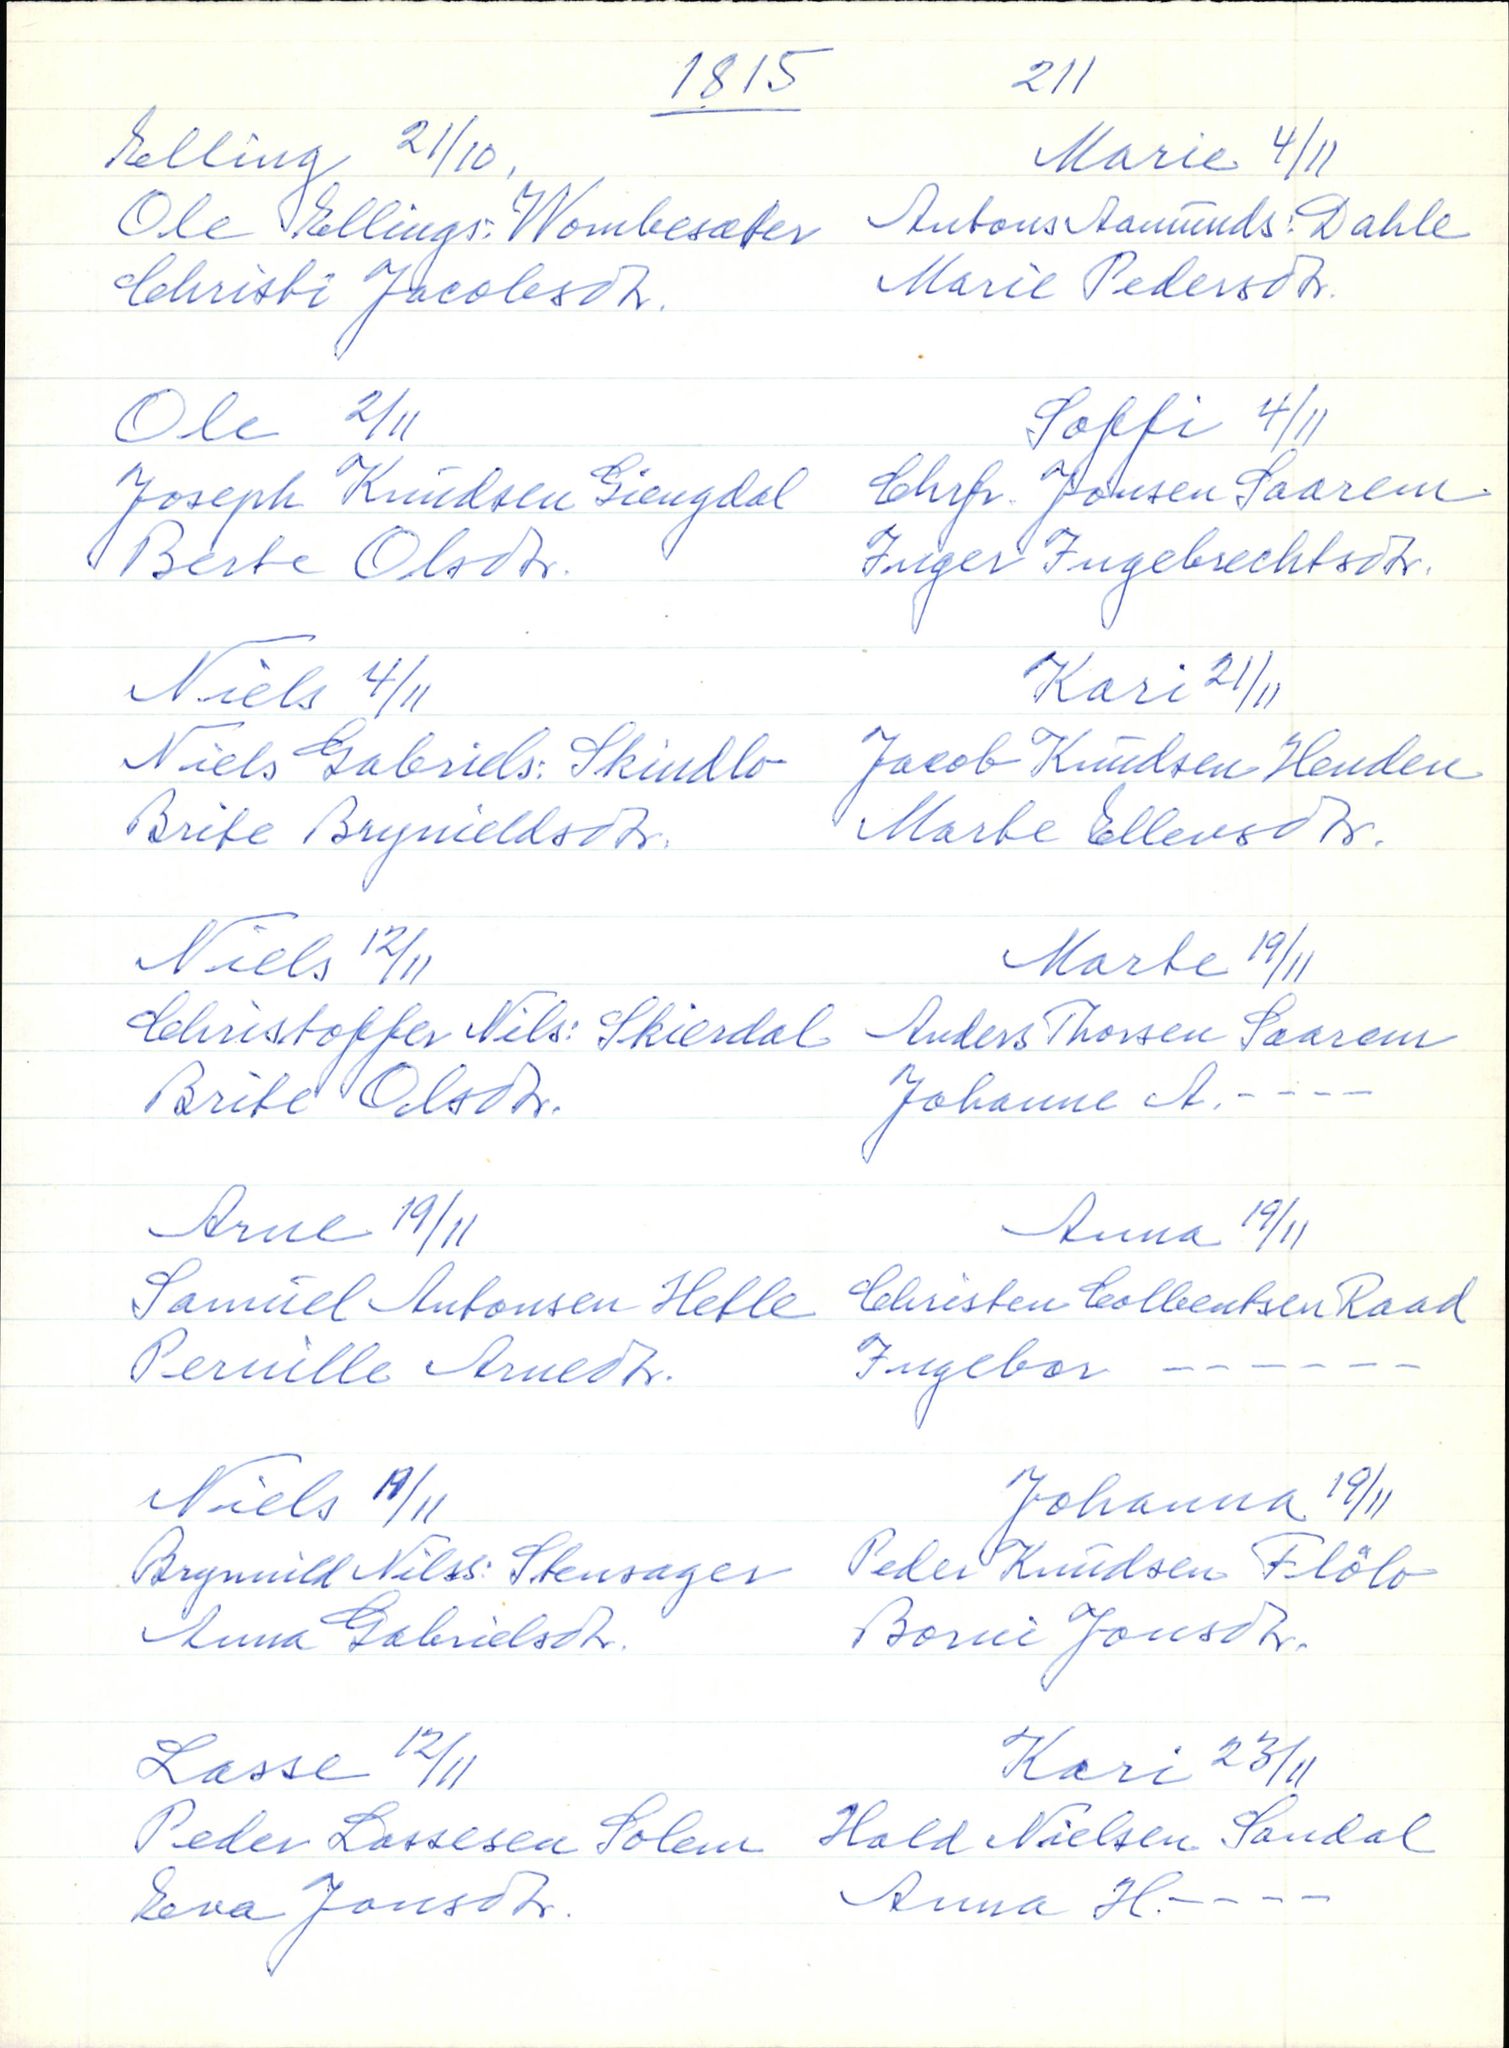 1815 211
Elling 21/10,
Ole Ellings: Wombesæter
Christi Jacobsdtr.
Marie 4/11
Antons Aamunds: Dahle
Marie Pedersdtr.
Ole 2/11
Joseph Knudsen Giengdal
Berte Olsdtr.
Soffi 4/11
Chrfr. Jonsen Saarem
Inger Ingebrechtsdtr.
Niels 4/11
Niels Gabriels: Skindlo
Brite Brynieldsdtr.
Kari 21/11
Jacob Knudsen Henden
Marte Ellensdtr.
Niels 12/11
Christoffer Nils: Skierdal
Brite Olsdtr.
Marte 19/11
Anders Thorsen Saarem
Johanne A.----
Arne 19/11
Samuel Antonsen Hetle
Pernille Arnedtr.
Anna 19/11
Christen Colbentsen Raad
Ingebor ------
Niels 19/11
Brynnild Nilss: Stensager
Anna Gabrielsdtr.
Johanna 19/11
Peder Knudsen Flölo
Borni Jonsdtr.
Lasse 12/11
Peder Lassesen Solem
Eva Jonsdtr.
Kari 23/11
Hald Nielsen Sandal
Anna H.----